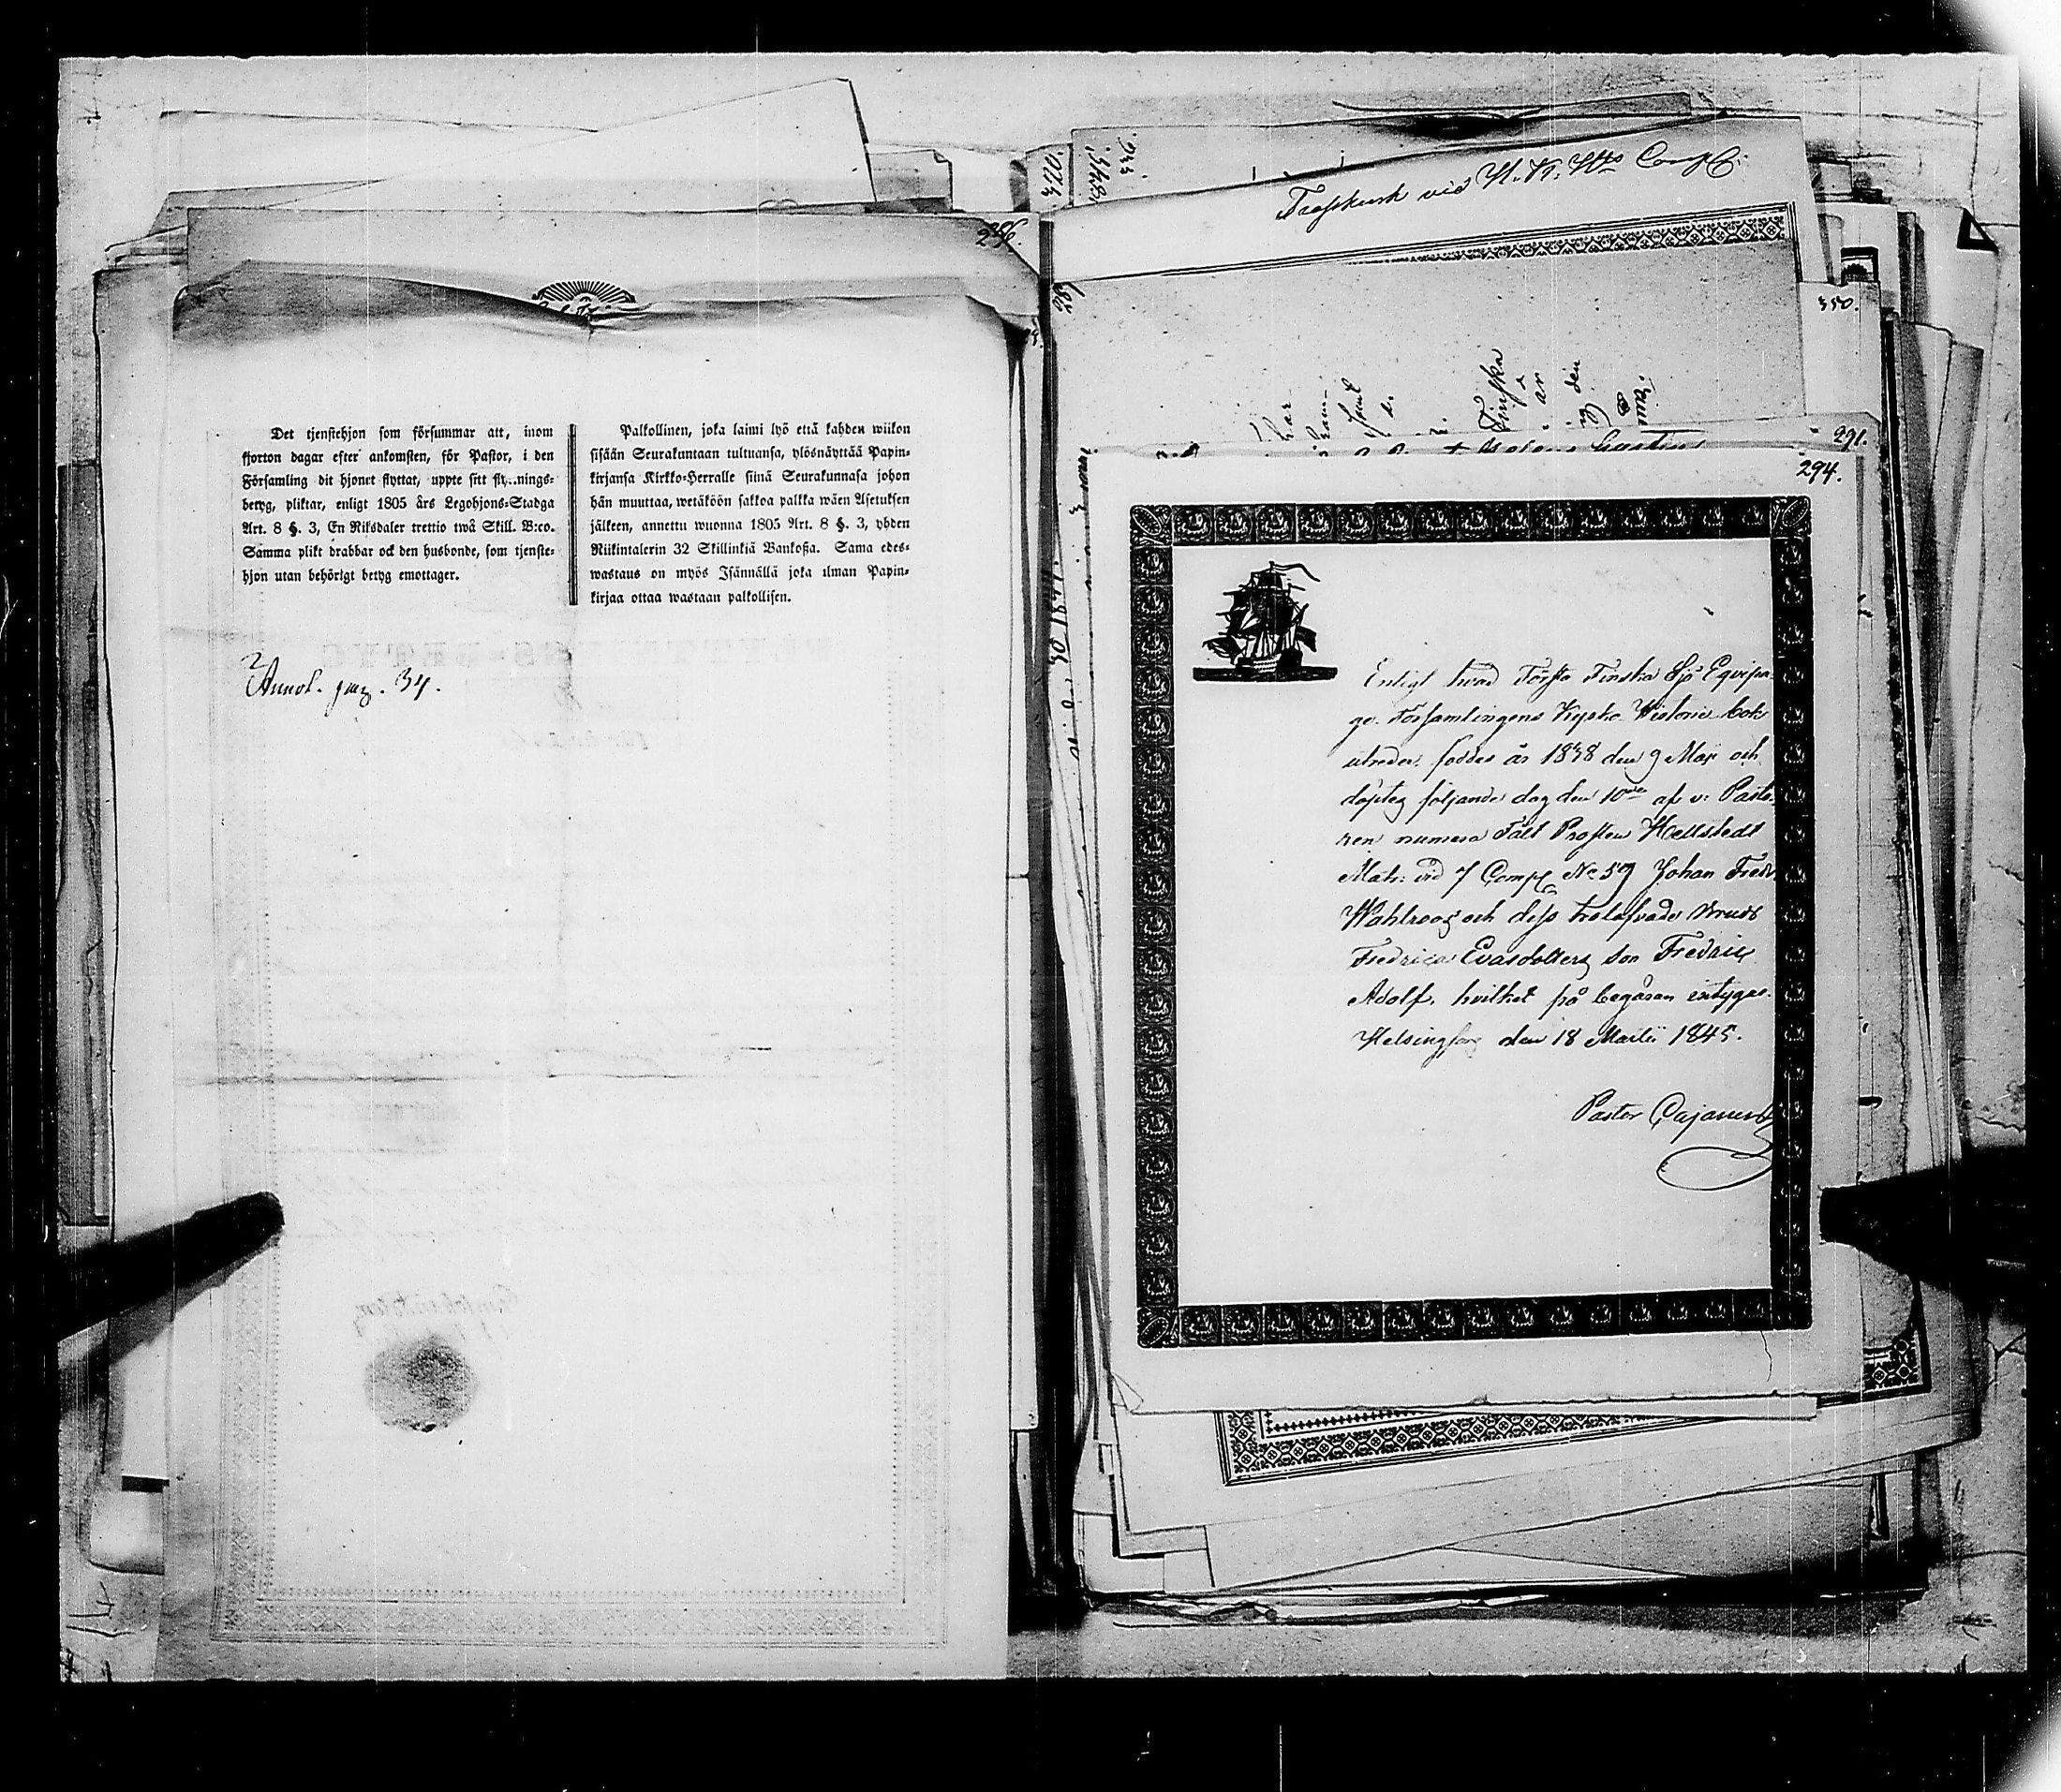 296.
Det tjenstehjon som försummar att, inom
fjorton dagar efter ankomsten, för Pastor, i den
Församling dit hjonet flyttat, uppte sitt fly..nings-
betyg, pliktar, enligt 1805 års Legohjons-Stadga
Art. 8 §. 3, En Riksdaler trettio twå Skill. B:co.
Samma plikt drabbar ock den husbonde, som tjenste-
hjon utan behörigt betyg emottager.
Palkollinen, joka laimi lyö että kahden wiikon
sisään Seurakuntaan tultuansa, ylösnäyttää Papin-
kirjansa Kirkko-Herralle siinä Seurakunnasa johon
hän muuttaa, wetäköön sakkoa palkka wäen Asetuksen
jälkeen, annettu wuonna 1805 Art. 8 §. 3, yhden
Riikintalerin 32 Skillinkiä Bankoßa. Sama edes-
wastaus on myös Isännällä joka ilman Papin-
kirjaa ottaa wastaan palkollisen.
Annot. pag. 34.
vid Comp:
350.
291.
294.
Enligt hvad Första Finska Sjö Equipa-
ge Församlingens Kyrko Historie bok
utreder, föddes år 1838 den 9 Maji och
döptes följande dag den 10de af v: Pasto-
ren numera Fält Prosten Hellstedt
Matr. vid 7 Comp No 59 Johan Fredr
Wahlroos och dess trolofvade Brud
Fredrica Evasdotters son Fredric
Adolf, hvilket på begäran extygas.
Helsingfors den 18 Martii 1845.
Pastor Cajanus